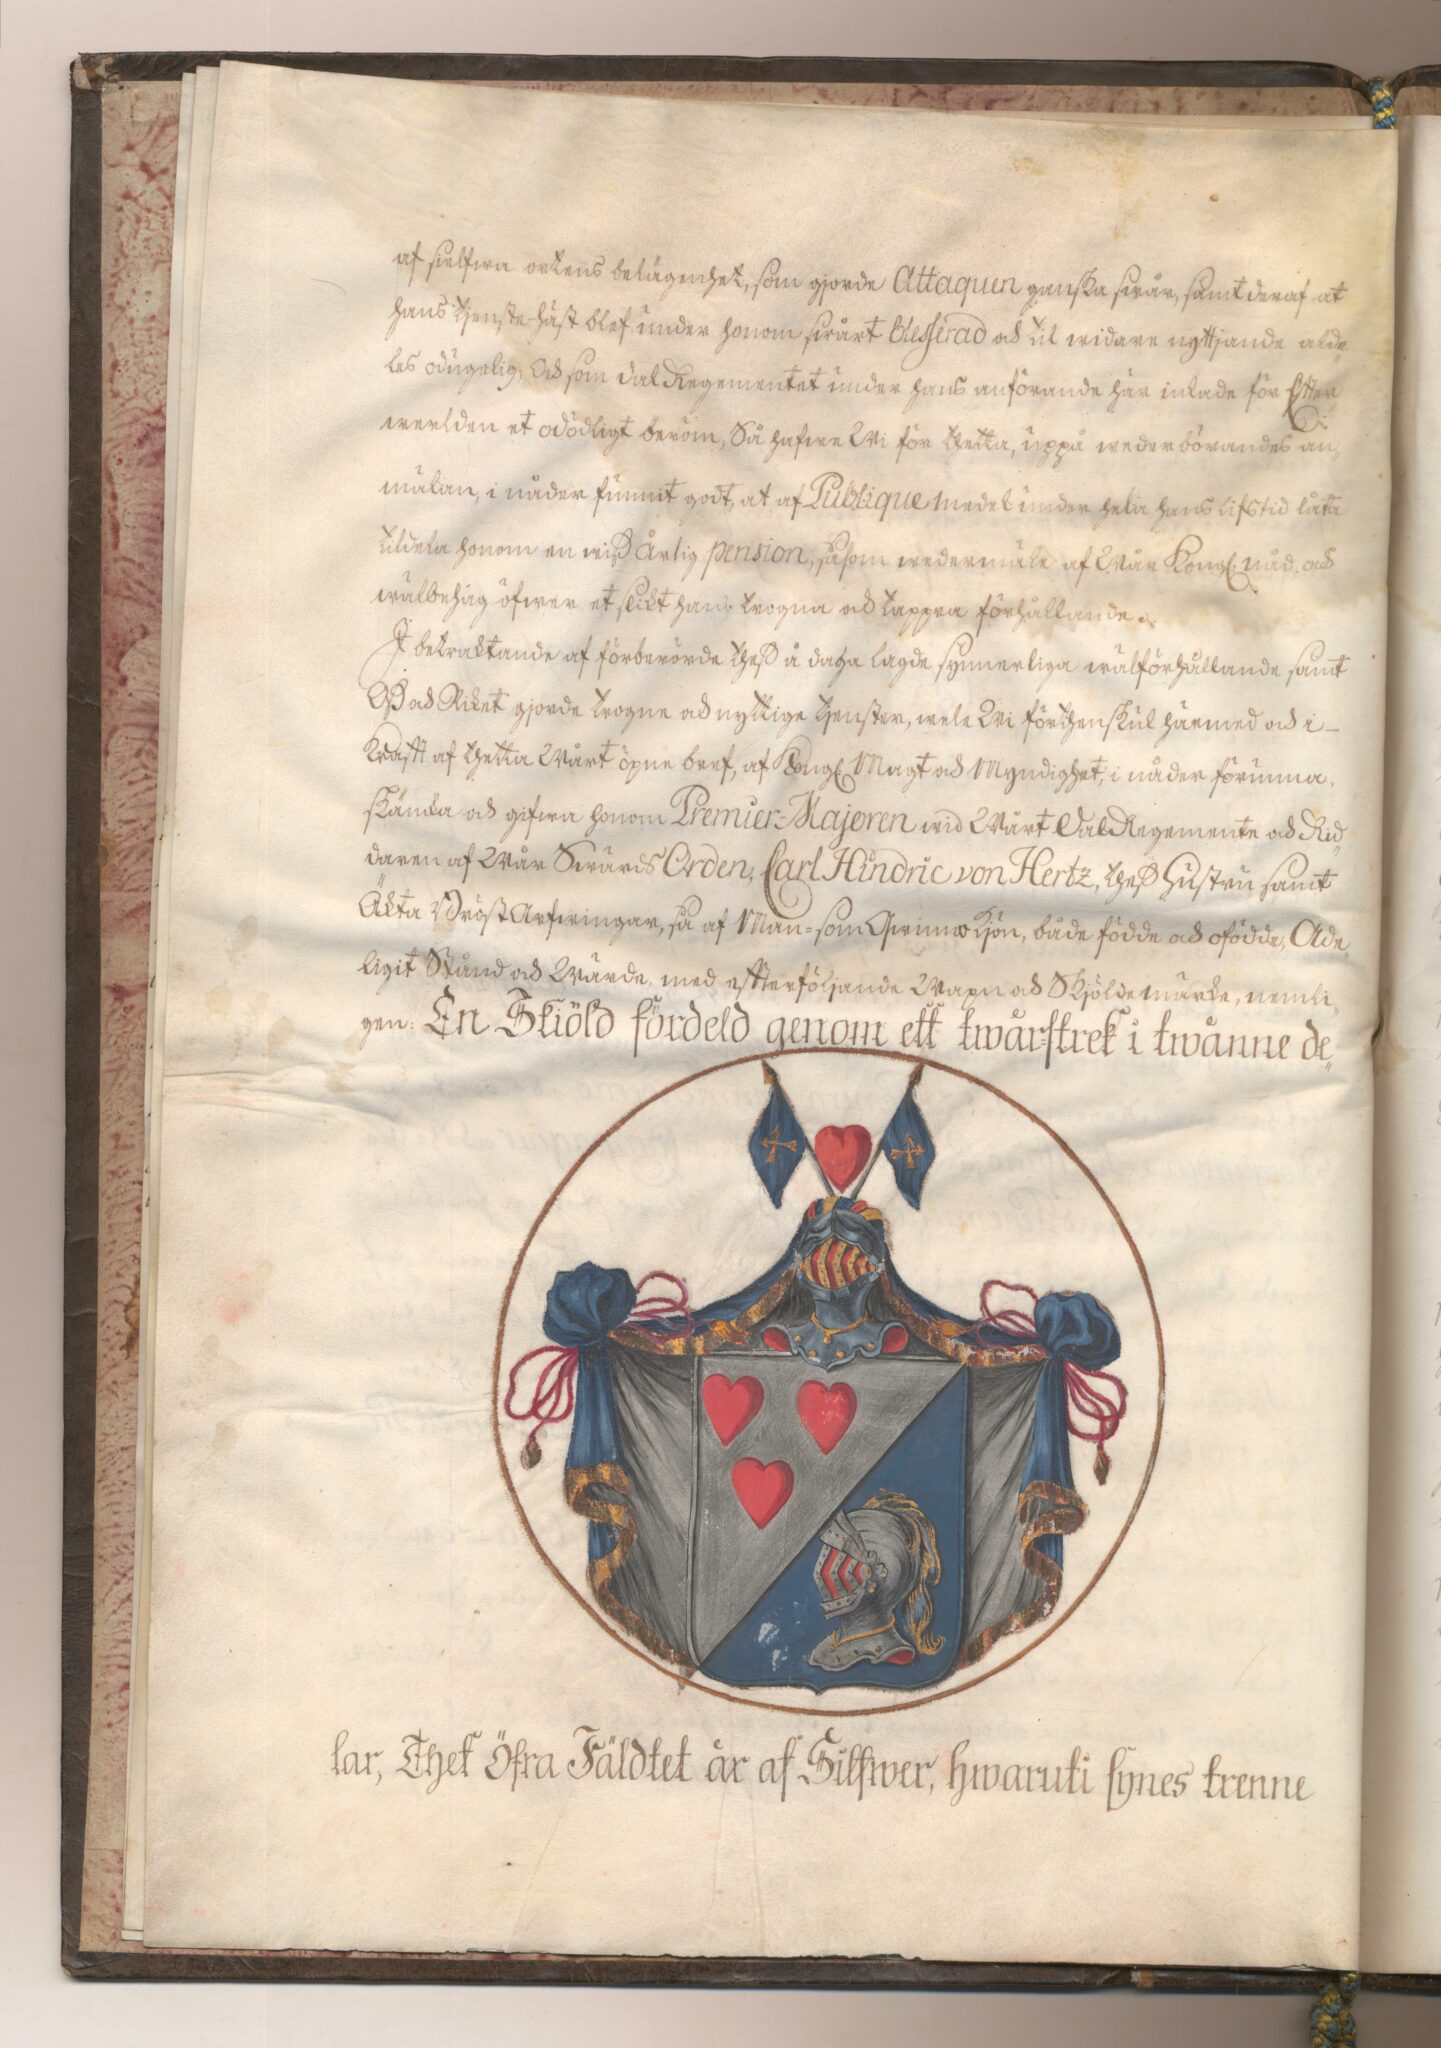 af sielfwa ortens belägenhet, som gjorde Attaquen ganska swår, samt deraf at
hans tjenste-häst blef under honom swårt blesserad och til widare nyttjande alde„
les odugelig; Och som Dal Regementet under hans anförande här inlade för Efter
werlden et odödligt beröm; Så hafwe Wi för thetta, uppå wederbörandes an„
mälan, i nåder funnit godt, at af Publique medel under hela hans lifstid låta
tildela honom en wiß årlig pension, såsom wedermäle af Wår Kongl. nåd och
wälbehag öfwer et slikt hans trogna och tappra förhållande.
I betraktande af förberörde theß å daga lagde synnerliga wälförhållande samt
Oß och Riket gjorde trogne och nyttige tjenster, wele Wi förthenskul härmed och i
kraft af thetta Wårt öpne bref, af Kongl. Magt och Myndighet, i nåder förunna,
skänka och gifwa honom Premier-Majoren wid Wårt Dal Regemente och Rid„
daren af Wår Swärds Orden, Carl Hindric von Hertz, theß Hustru samt
Äkta Bröst Arfwingar, så af Man- som Qwinno Kjön, både födde och ofödde, Ade„
ligit Stånd och Wärde, med efterföljande Wapn och Skjöldemärke, nemli„
gen: En Skiöld fördeld genom ett twärstrek i twänne de„
lar, Thet Öfra Fäldtet är af Silfwer, hwaruti synes trenne